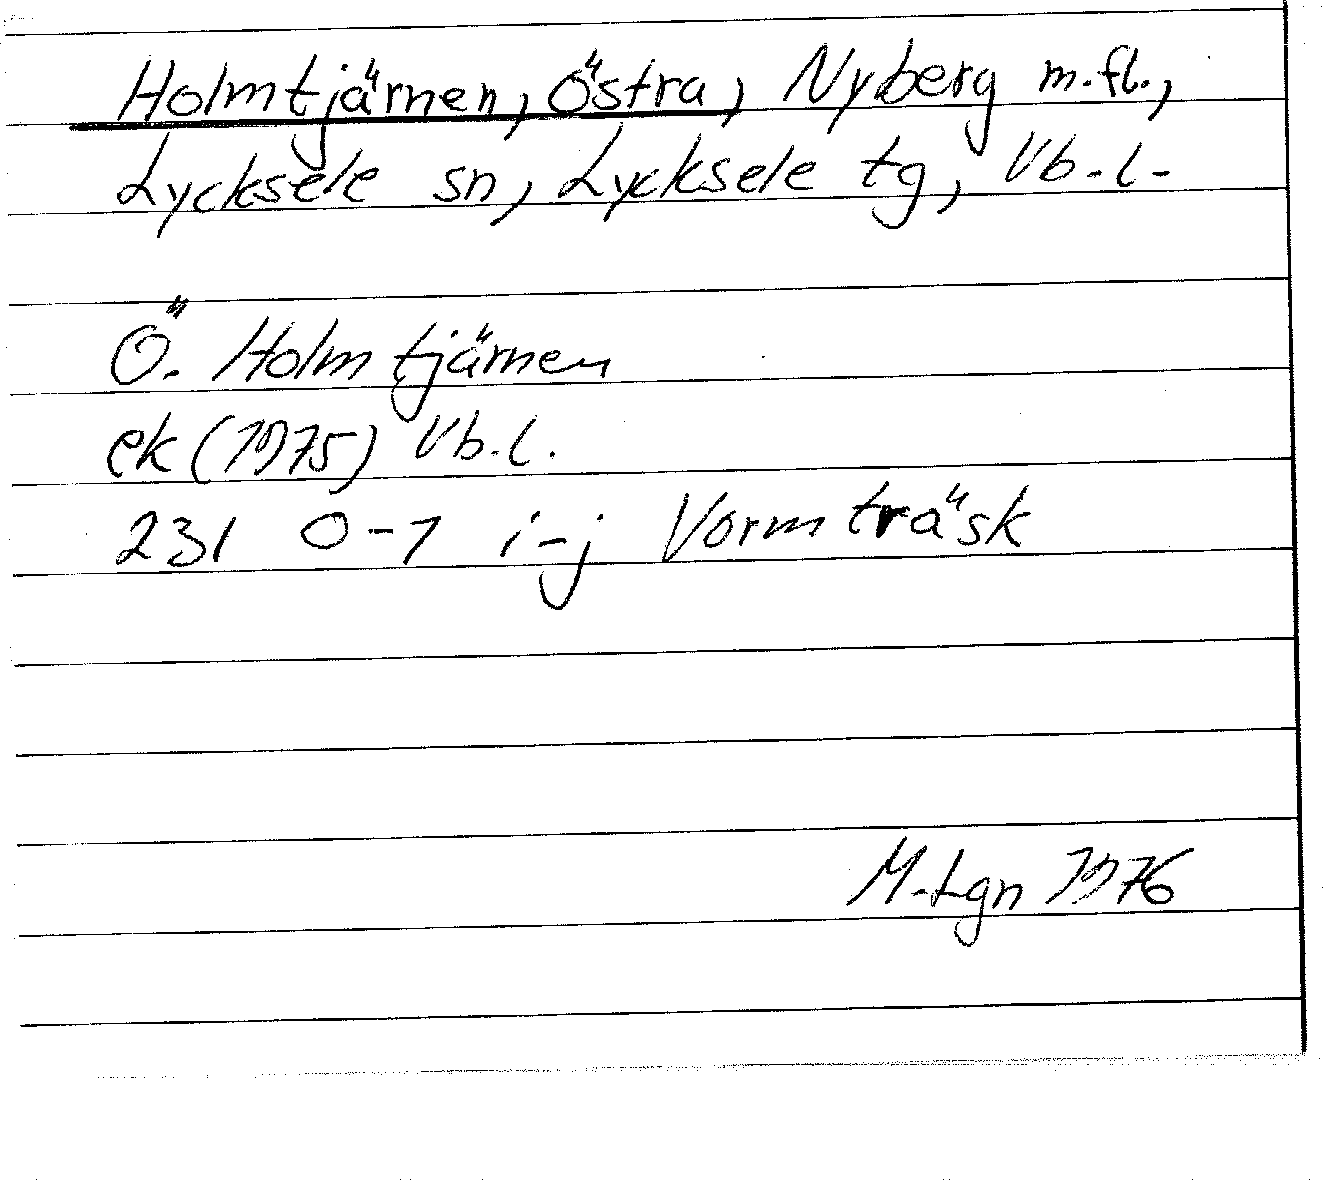 Holmtjärnen, Östra, Nyberg m.fl.,
Lycksele sn, Lycksele tg, Vb.l.
Ö. Holmtjärnen
ek (1975) Vb.l.
231 0-1 i-j Vormträsk
M.Lgn 1976